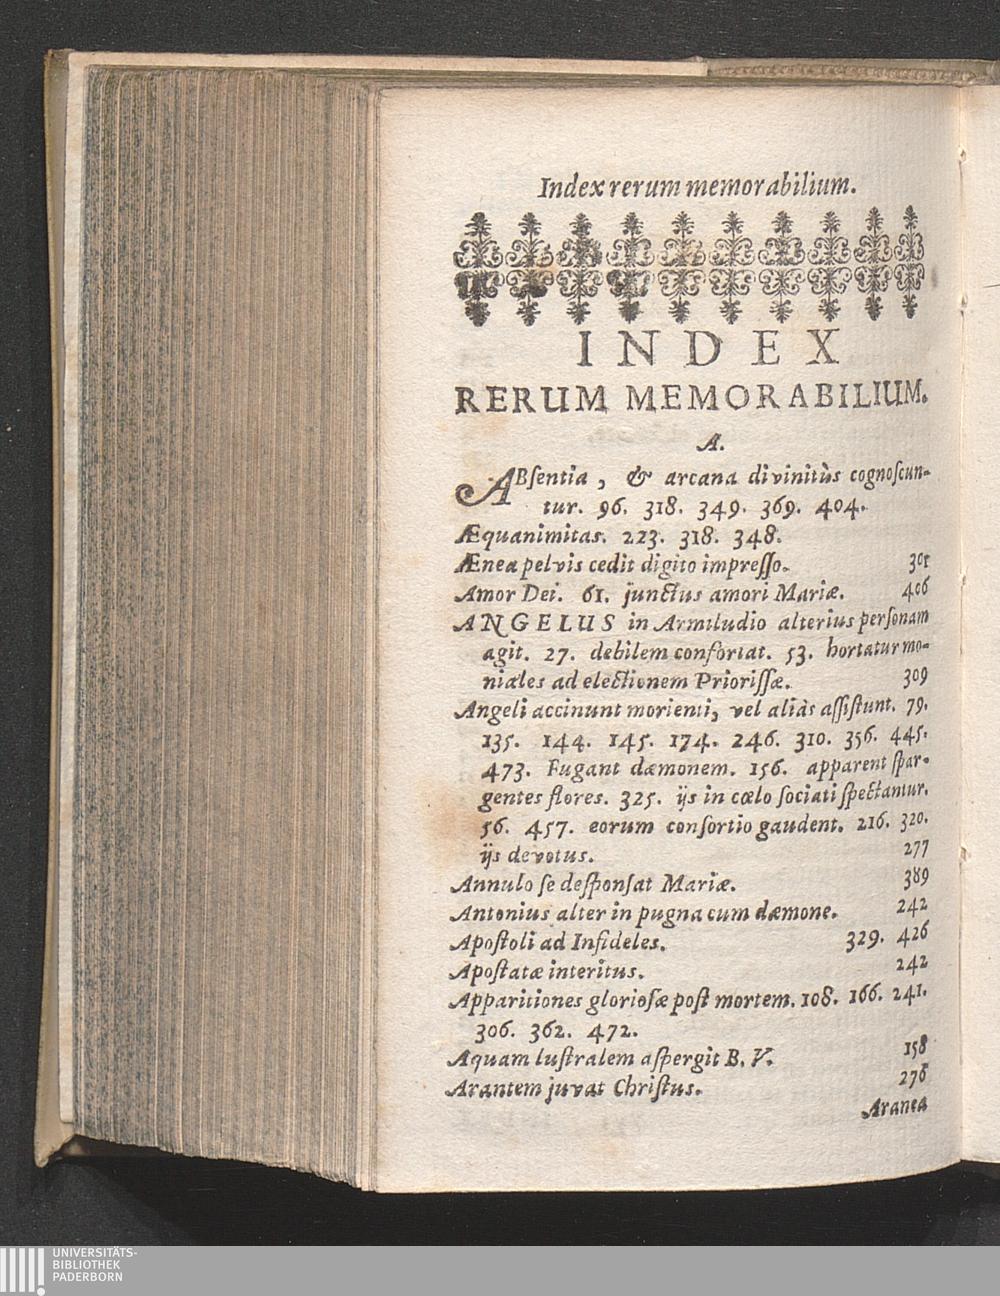 Index rerum memorabilium.
INDEX
RERUM MEMORABILIUM.
A.
ABſentia, & arcana divinitùs cognoſcun-
tur. 96. 318. 349. 369. 404.
Æquanimitas. 223. 318. 348.
Ænea pelvis cedit digito impreſſo. 301
Amor Dei. 61. junctus amori Mariæ. 406
ANGELUS in Armiludio alterius perſonam
agit. 27. debilem confortat. 53. hortatur mo-
niales ad electionem Prioriſſæ. 309
Angeli accinunt morienti, vel aliàs aſſiſtunt. 79.
135. 144. 145. 174. 246. 310. 356. 445.
473. Fugant dæmonem. 156. apparent ſpar-
gentes flores. 325. ijs in cœlo ſociati ſpectantur.
56. 457. eorum conſortio gaudent. 216. 320.
ijs devotus. 277
Annulo ſe deſponſat Mariæ. 389
Antonius alter in pugna cum dæmone. 242
Apoſtoli ad Infideles. 329. 426
Apoſtatæ interitus. 242
Apparitiones glorioſæ poſt mortem. 108. 166. 241.
306. 362. 472.
Aquam luſtralem aſpergit B. V. 158
Arantem juvat Chriſtus. 276
Aranea
UNIVERSITÄTS-
BIBLIOTHEK
PADERBORN